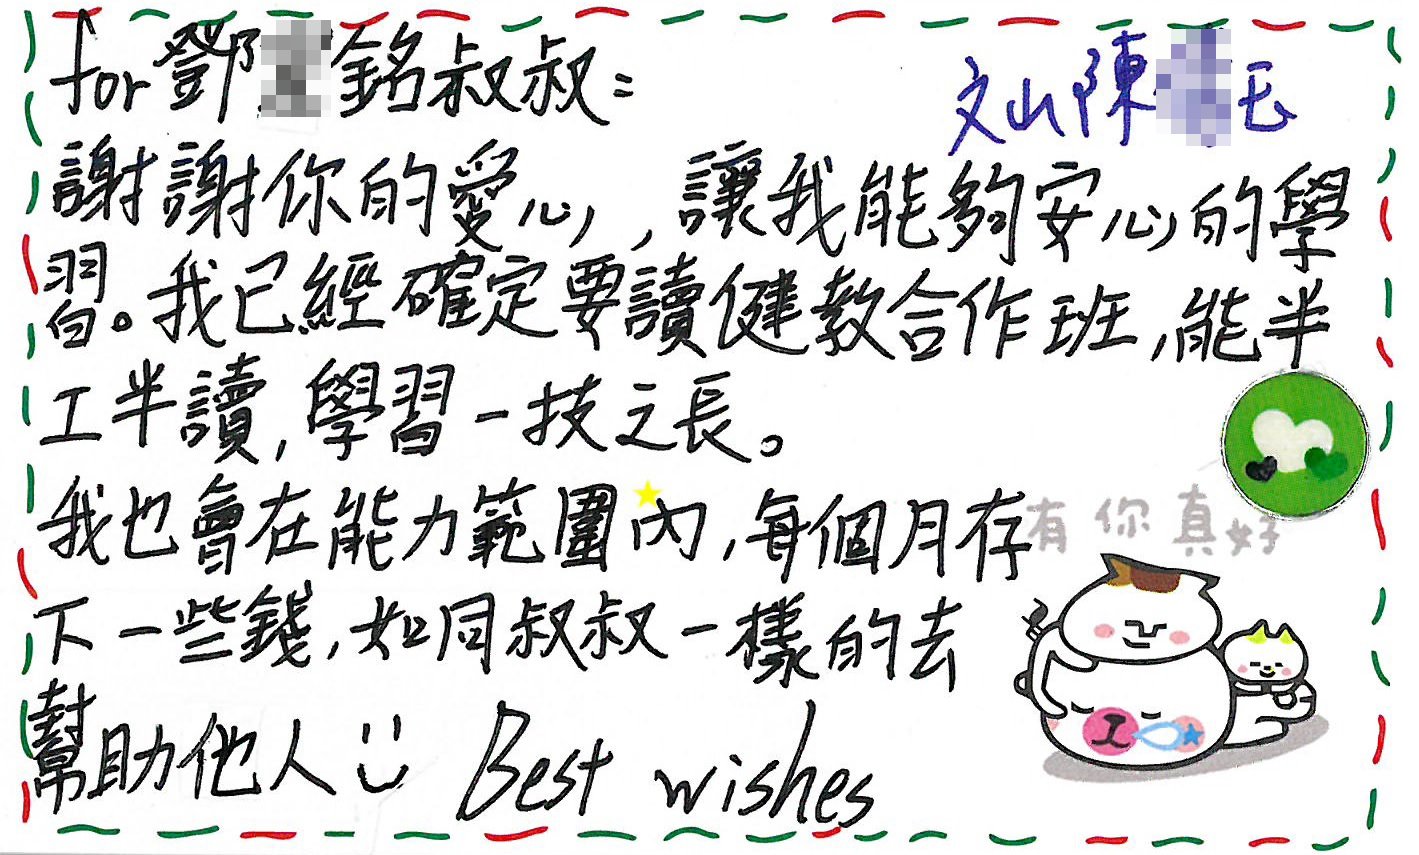 for 鄧 銘叔叔：
文山陳
謝謝你的愛心，讓我能夠安心的學
習。我已經確定要讀健教合作班，能半
工半讀，學習一技之長。
我也會在能力範圍內，每個月存
下一些錢，如同叔叔一樣的去
幫助他人
Best wishes
有你真好